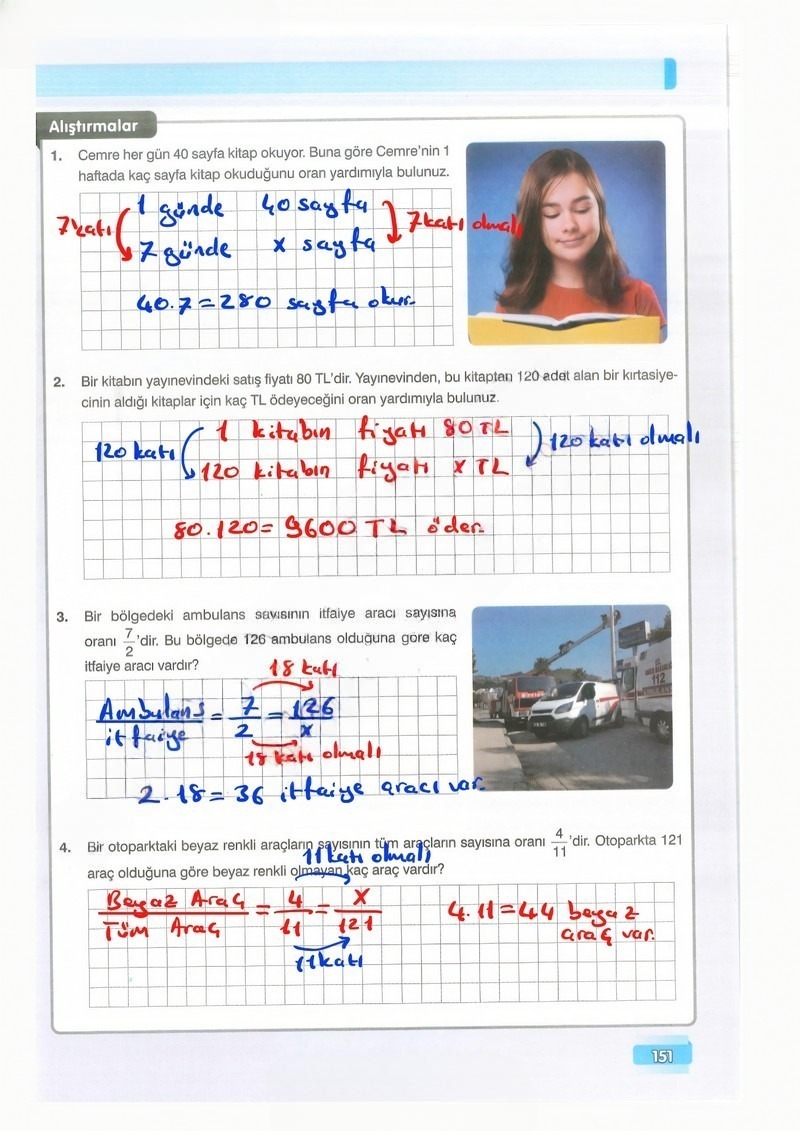 Alıştırmalar
1. Cemre her gün 40 sayfa kitap okuyor. Buna göre Cemre'nin 1
haftada kaç sayfa kitap okuduğunu oran yardımıyla bulunuz.
7 katı 1 günde 40 sayfa 7 katı olmalı
7 günde x sayfa
40.7=280 sayfa okur.
2. Bir kitabın yayınevindeki satış fiyatı 80 TL'dir. Yayınevinden, bu kitaptan 120 adet alan bir kırtasiye-
cinin aldığı kitaplar için kaç TL ödeyeceğini oran yardımıyla bulunuz.
120 katı 1 kitabın fiyatı 80 TL 120 katı olmalı
120 kitabın fiyatı x TL
80.120= 9600 TL öder.
3. Bir bölgedeki ambulans sayısının itfaiye aracı sayısına
oranı 7/2'dir. Bu bölgede 126 ambulans olduğuna göre kaç
itfaiye aracı vardır?
18 katı
Ambulans/itfaiye = 7/2 = 126/x
18 katı olmalı
2.18=36 itfaiye aracı var.
112
4. Bir otoparktaki beyaz renkli araçların sayısının tüm araçların sayısına oranı 4/11'dir. Otoparkta 121
11 katı olmalı
araç olduğuna göre beyaz renkli olmayan kaç araç vardır?
Beyaz Araç/Tüm Araç = 4/11 = x/121 4.11=44 beyaz
araç var.
11 katı
151